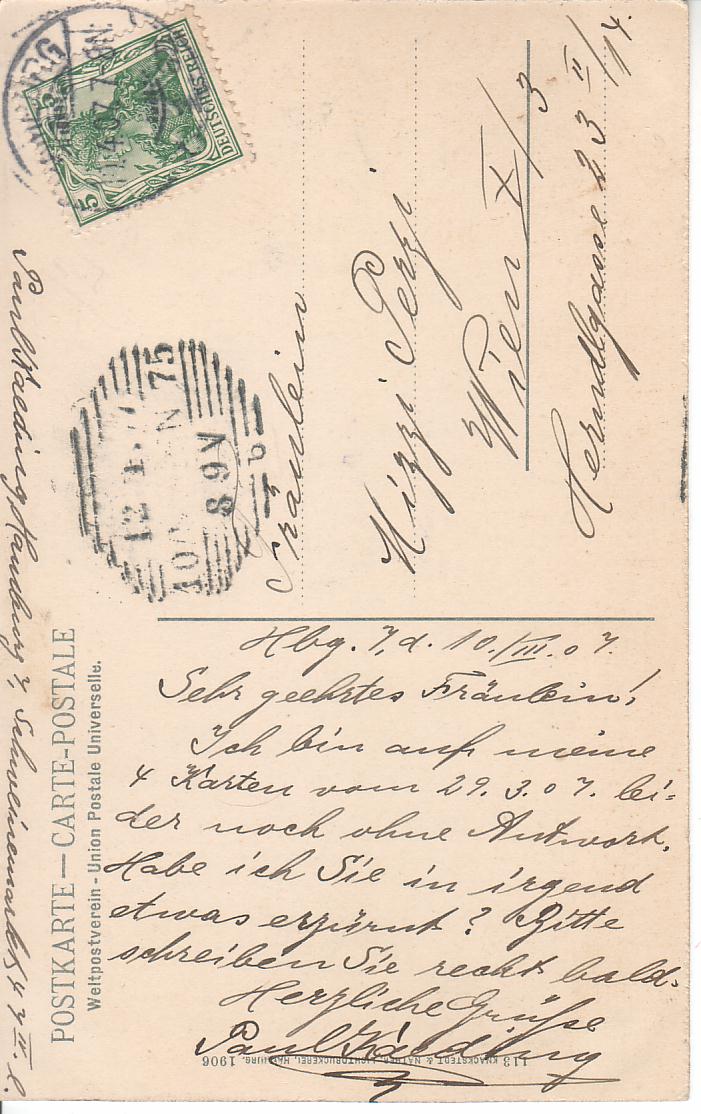 POSTKARTE — CARTE-POSTALE
Weltpostverein - Union Postale Universelle.
DEUTSCHES REICH
5
12
8 9V
75
b
Fräulein
Mizzi Perzi
Wien X/3
Herndlgasse 23 II/14.
Hbg. 7, d. 10./III. 07.
Sehr geehrtes Fräulein!
Ich bin auf meine
4 Karten vom 29.3.07. lei-
der noch ohne Antwort.
Habe ich Sie in irgend
etwas erzürnt? Bitte
schreiben Sie recht bald.
Herzliche Grüße
Paul Kaeding
Paul Kaeding, Hamburg 7, Schweinemarkt 47 III. l.
113 KNACKSTEDT & NÄTHER, LICHTDRUCKEREI, HAMBURG. 1906